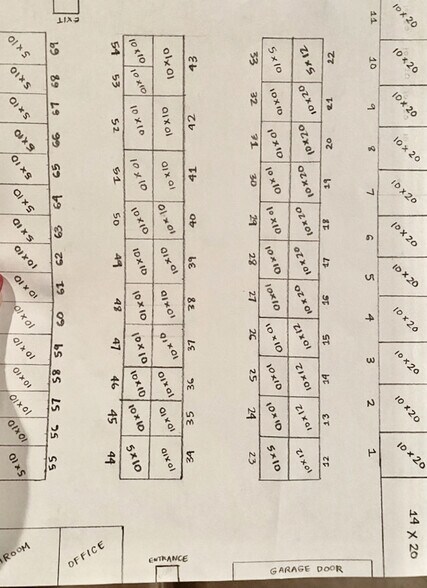 EXIT
69 5x10
68 5x10
67 5x10
66 5x10
65 5x10
64 5x10
63 5x10
62 10x10
61 10x10
60 10x10
59 10x10
58 10x10
57 10x10
56 10x10
55 5x10
54 10x10
53 10x10
52 10x10
51 10x10
50 10x10
49 10x10
48 10x10
47 10x10
46 10x10
45 10x10
44 5x10
10x10 43
10x10 42
10x10 41
10x10 40
10x10 39
10x10 38
10x10 37
10x10 36
10x10 35
10x10 34
33 5x10
32 10x10
31 10x10
30 10x10
29 10x10
28 10x10
27 10x10
26 10x10
25 10x10
24 10x10
23 5x10
5x12 22
10x20 21
10x20 20
10x20 19
10x20 18
10x20 17
10x20 16
10x12 15
10x12 14
10x12 13
10x12 12
11 10x20
10 10x20
9 10x20
8 10x20
7 10x20
6 10x20
5 10x20
4 10x20
3 10x20
2 10x20
1 10x20
14 X 20
ROOM
OFFICE
ENTRANCE
GARAGE DOOR